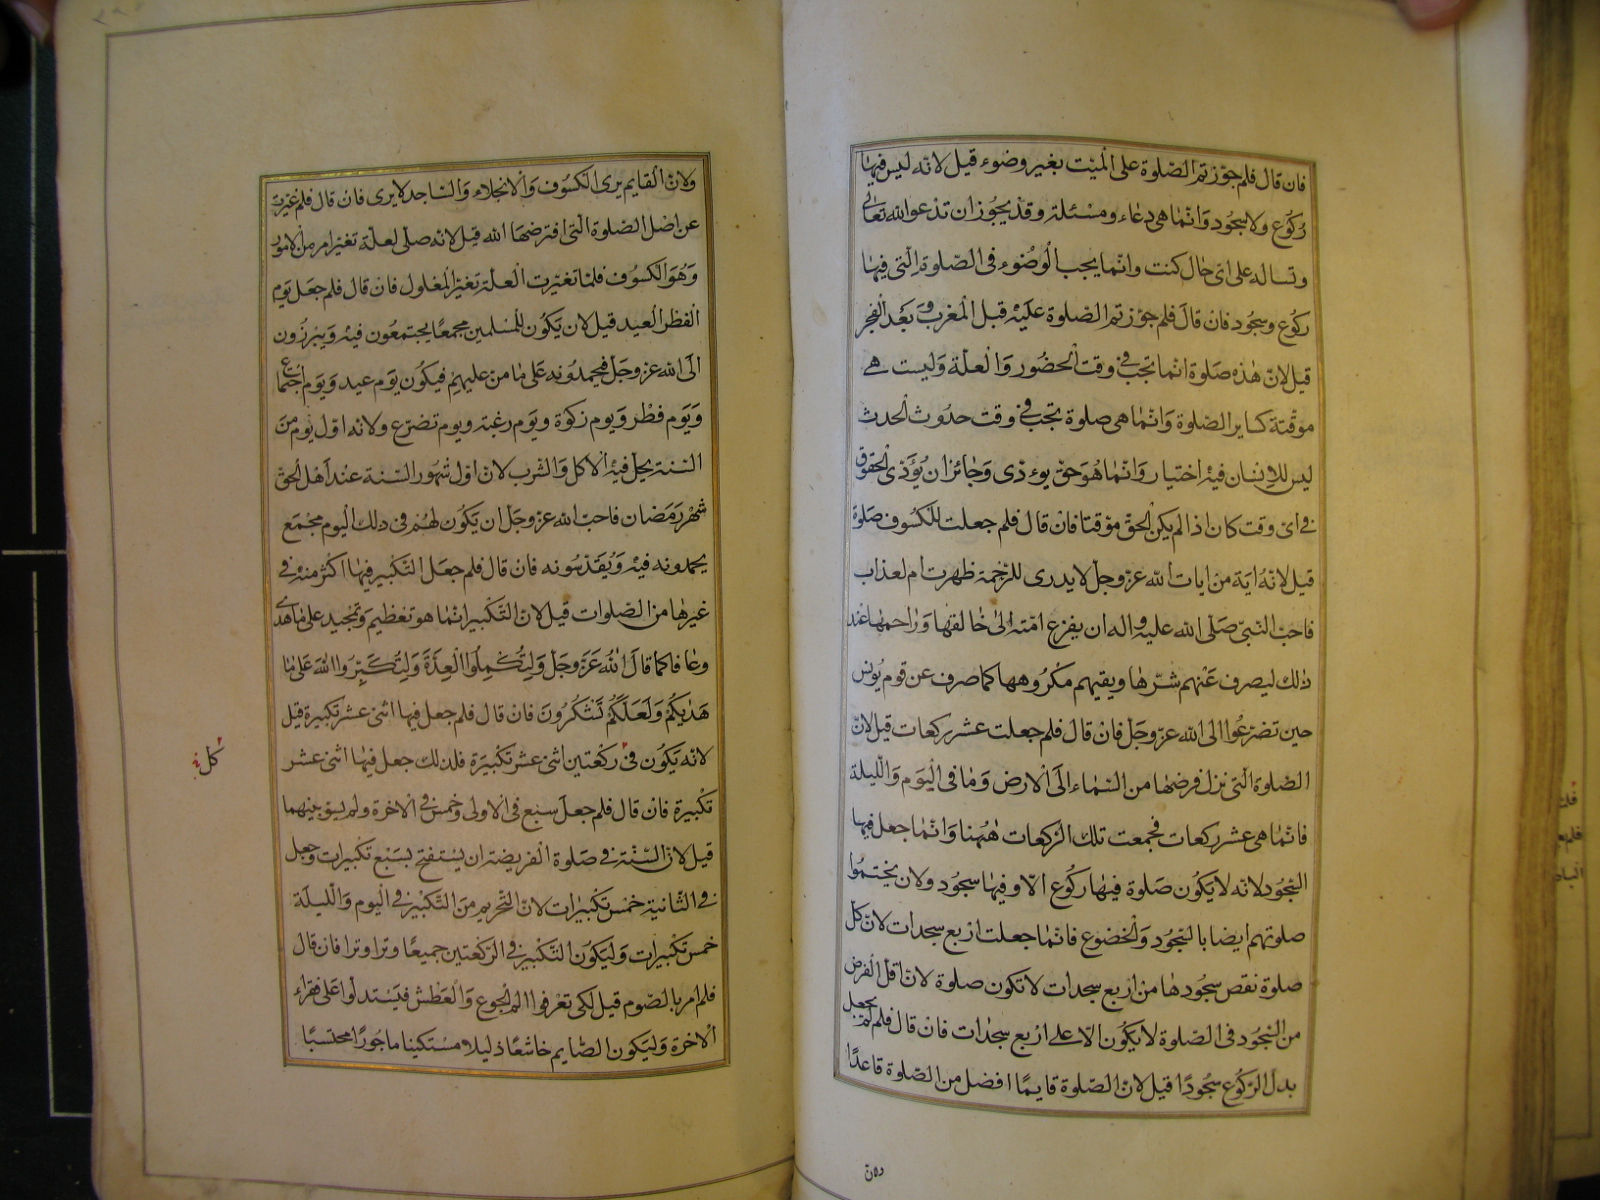 فان قال فلم جوزتم الصلوة على الميت بغير وضوء قيل لانه ليس فيها
ركوع ولا سجود وانما هى دعاء ومسئلة وقد يجوز ان تدعو الله تعالى
وتساله على اى حال كنت وانما يجب الوضوء فى الصلوة التى فيها
ركوع وسجود فان قال فلم جوزتم الصلوة عليه قبل المغرب وبعد الفجر
قيل لان هذه صلوة انما تجب فى وقت الحضور والعلة وليست هى
موقتة كساير الصلوة وانما هى صلوة تجب فى وقت حدوث الحدث
ليس للانسان فيه اختيار وانما هو حق يوءدى وجائز ان يؤدى الحقوق
فى اى وقت كان اذا لم يكن الحق موقتا فان قال فلم جعلت للكسوف صلوة
قيل لانه اية من ايات الله عز وجل لا يدرى للرحمة ظهرت ام لعذاب
فاحب النبى صلى الله عليه واله ان يفزع امته الى خالقها وراحمها عند
ذلك ليصرف عنهم شرها ويقيهم مكروهها كما صرف عن قوم يونس
حين تضرعوا الى الله عز وجل فان قال فلم جعلت عشر ركعات قيل لان
الصلوة التى نزل فرضها من السماء الى الارض وما فى اليوم والليلة
فانما هى عشر ركعات فجمعت تلك الركعات ههنا وانما جعل فيها
السجود لانه لا يكون صلوة فيها ركوع الا وفيها سجود ولان يختموا
صلوتهم ايضا بالسجود والخضوع فانما جعلت اربع سجدات لان كل
صلوة نقص سجودها من اربع سجدات لا تكون صلوة لان اقل الفرض
من السجود فى الصلوة لا يكون الا على اربع سجدات فان قال فلم لم يجعل
بدل الركوع سجودا قيل لان الصلوة قايما افضل من الصلوة قاعدا
ولان القايم يرى الكسوف والانجلاء والساجد لا يرى فان قال فلم غيرت
عن اصل الصلوة التى افترضها الله قيل لانه صلى لعلة تغير امر من الامور
وهو الكسوف فلما تغيرت العلة تغير المعلول فان قال فلم جعل يوم
الفطر العيد قيل لان يكون للمسلمين مجمعا يجتمعون فيه ويبرزون
الى الله عز وجل فيحمدونه على ما من عليهم فيكون يوم عيد ويوم اجتماع
ويوم فطر ويوم زكوة ويوم رغبة ويوم تضرع ولانه اول يوم من
السنة يحل فيه الاكل والشرب لان اول شهور السنة عند اهل الحق
شهر رمضان فاحب الله عز وجل ان يكون لهم فى ذلك اليوم مجمع
يحمدونه فيه ويقدسونه فان قال فلم جعل التكبير فيها اكثر منه فى
غيرها من الصلوات قيل لان التكبير انما هو تعظيم وتمجيد على ما هدى
وعافا كما قال الله عز وجل ولتكملوا العدة ولتكبروا الله على ما
هديكم ولعلكم تشكرون فان قال فلم جعل فيها اثنى عشر تكبيرة قيل
لانه يكون فى ركعتين اثنى عشر تكبيرة فلذلك جعل فيها اثنى عشر
كل
تكبيرة فان قال فلم جعل سبع فى الاولى وخمس فى الاخرة ولم يسو بينهما
قيل لان السنة فى صلوة الفريضة ان يستفتح بسبع تكبيرات وجعل
فى الثانية خمس تكبيرات لان التحريم من التكبير فى اليوم والليلة
خمس تكبيرات وليكون التكبير فى الركعتين جميعا وترا وترا فان قال
فلم امر بالصوم قيل لكى تعرفوا الم الجوع والعطش فيستدلوا على فقراء
الاخرة وليكون الصايم خاشعا ذليلا مستكينا ماجورا محتسبا